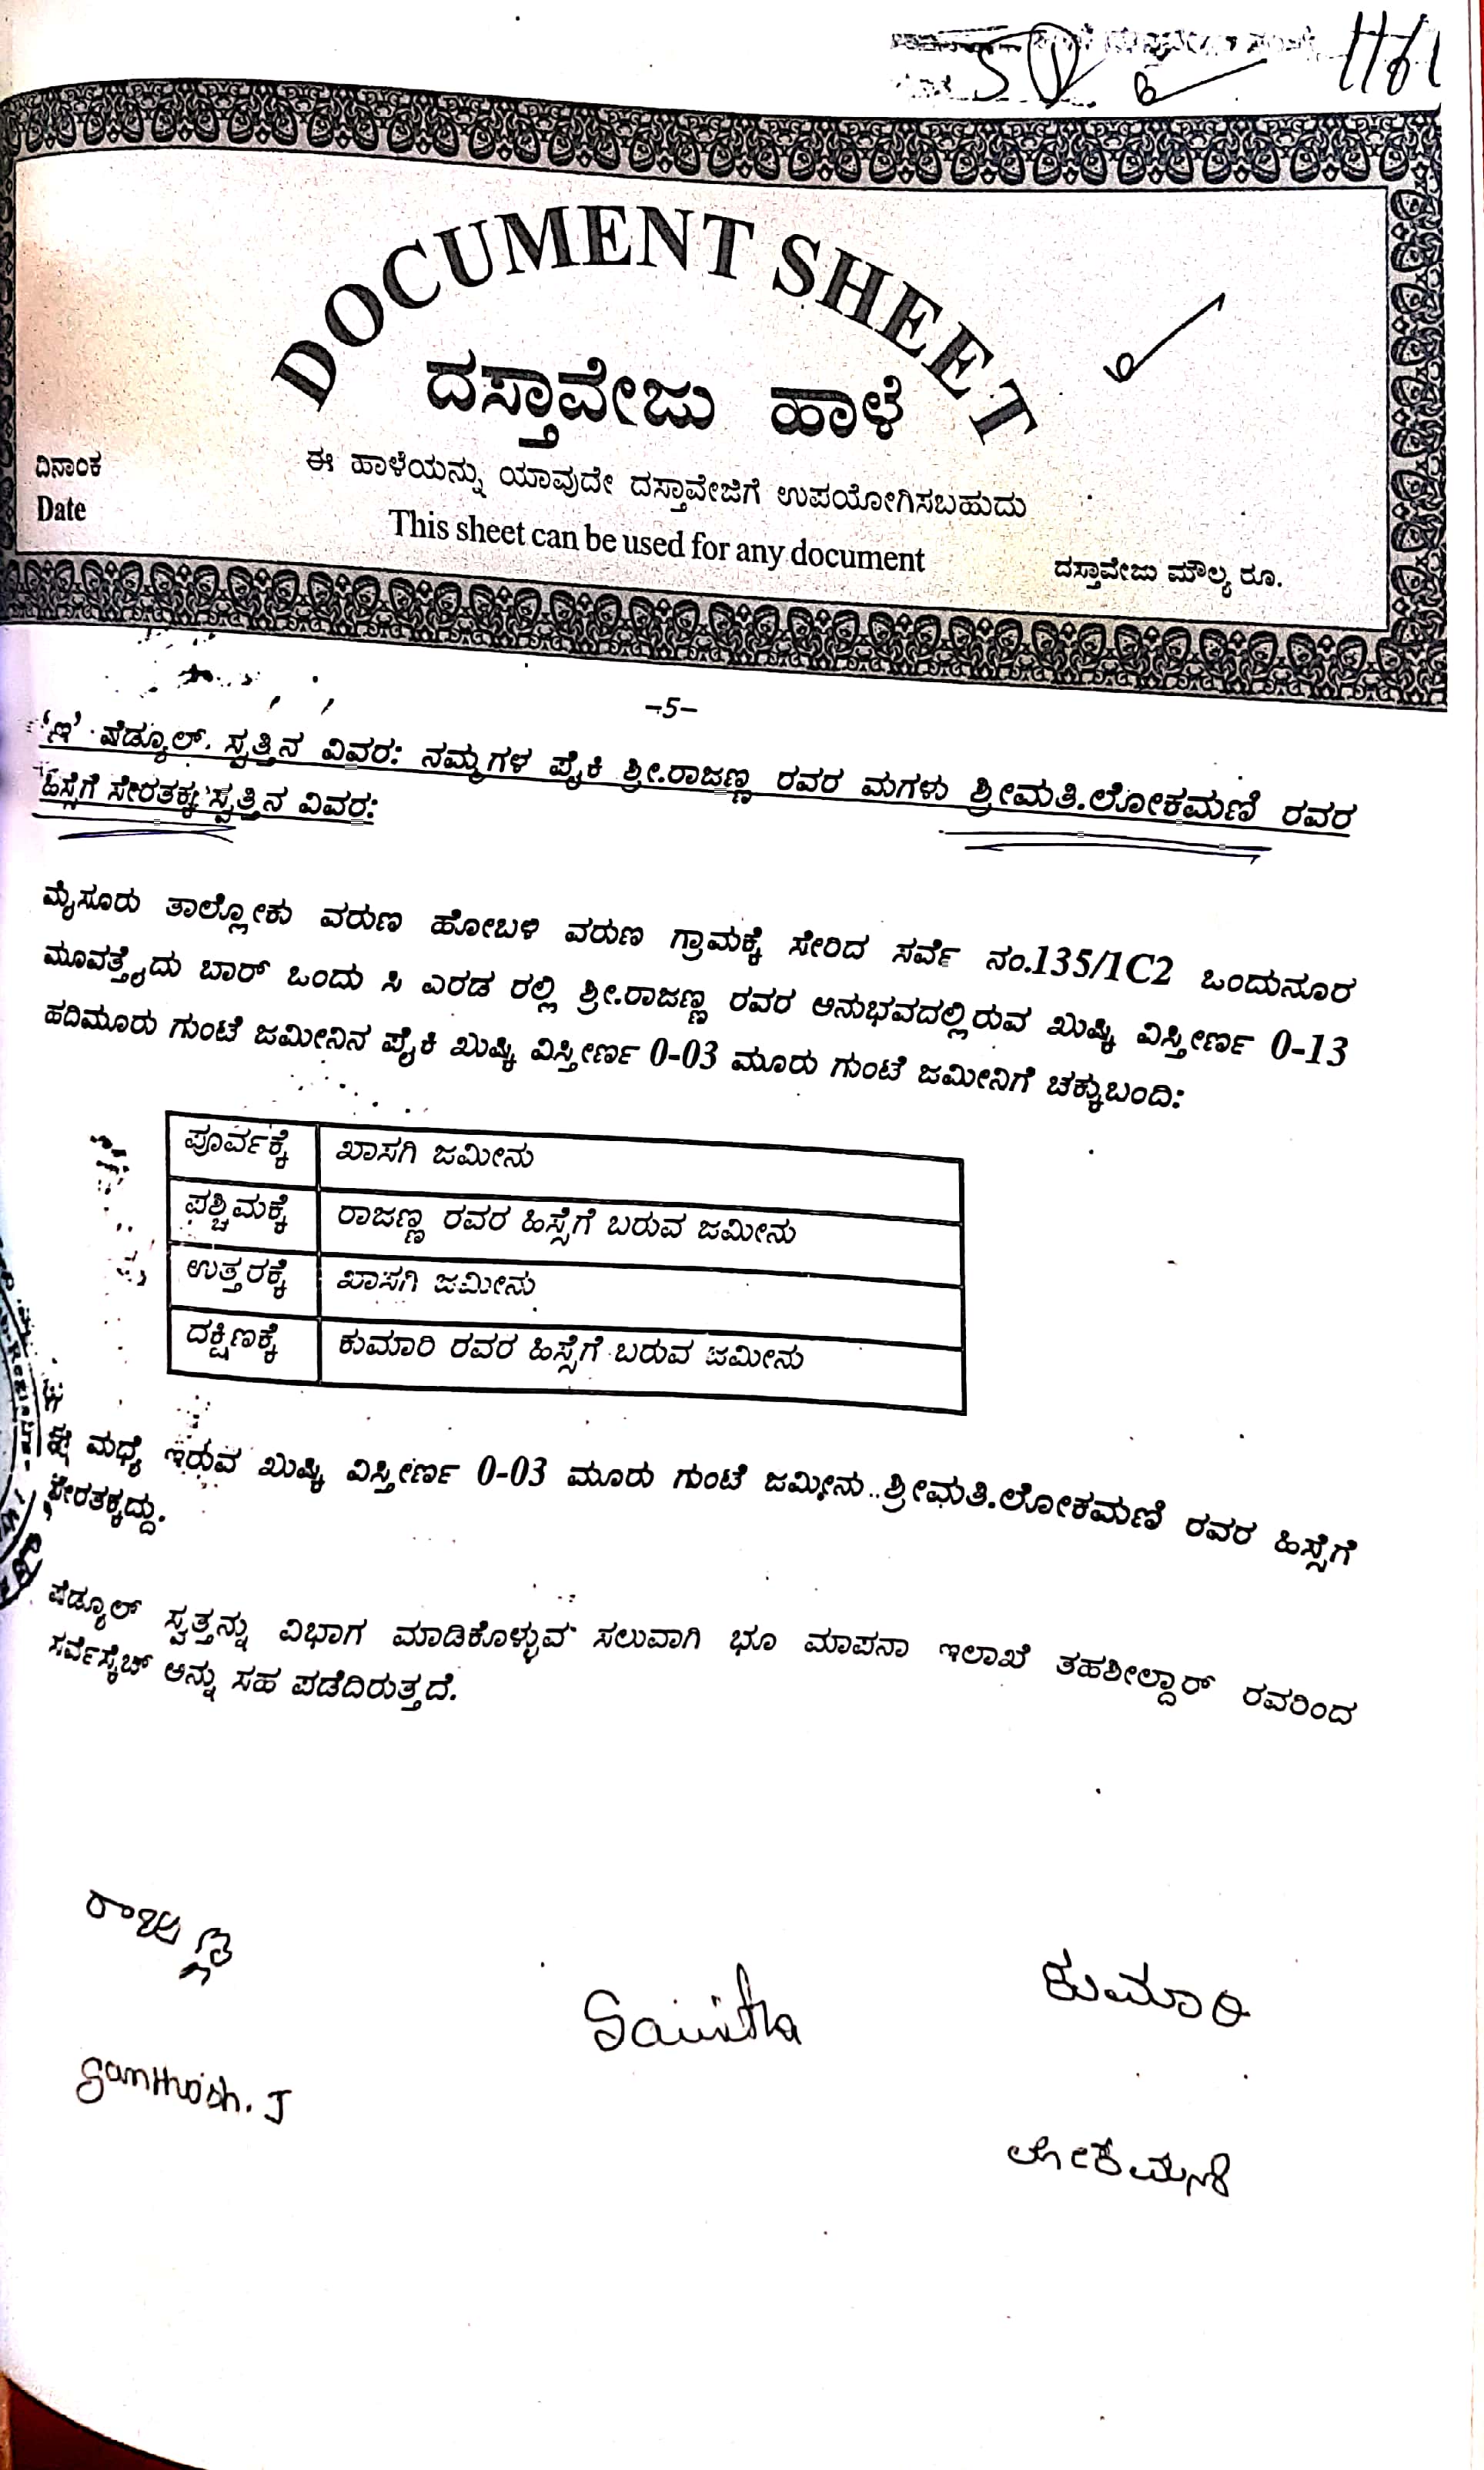 5 6 11/61
DOCUMENT SHEET
ದಸ್ತಾವೇಜು ಹಾಳೆ
ದಿನಾಂಕ
Date
ಈ ಹಾಳೆಯನ್ನು ಯಾವುದೇ ದಸ್ತಾವೇಜಿಗೆ ಉಪಯೋಗಿಸಬಹುದು
This sheet can be used for any document
ದಸ್ತಾವೇಜು ಮೌಲ್ಯ ರೂ.
-5-
ಷೆಡ್ಯೂಲ್ ಸ್ವತ್ತಿನ ವಿವರ: ನಮ್ಮಗಳ ಪೈಕಿ ಶ್ರೀ.ರಾಜಣ್ಣ ರವರ ಮಗಳು ಶ್ರೀಮತಿ.ಲೋಕಮಣಿ ರವರ
ಹಿಸ್ಸೆಗೆ ಸೇರತಕ್ಕ ಸ್ವತ್ತಿನ ವಿವರ:
ಮೈಸೂರು ತಾಲ್ಲೋಕು ವರುಣ ಹೋಬಳಿ ವರುಣ ಗ್ರಾಮಕ್ಕೆ ಸೇರಿದ ಸರ್ವೆ ನಂ.135/1C2 ಒಂದುನೂರ
ಮೂವತ್ತೈದು ಬಾರ್ ಒಂದು ಸಿ ಎರಡ ರಲ್ಲಿ ಶ್ರೀ.ರಾಜಣ್ಣ ರವರ ಅನುಭವದಲ್ಲಿರುವ ಖುಷ್ಕಿ ವಿಸ್ತೀರ್ಣ 0-13
ಹದಿಮೂರು ಗುಂಟೆ ಜಮೀನಿನ ಪೈಕಿ ಖುಷ್ಕಿ ವಿಸ್ತೀರ್ಣ 0-03 ಮೂರು ಗುಂಟೆ ಜಮೀನಿಗೆ ಚಕ್ಕುಬಂದಿ:
ಪೂರ್ವಕ್ಕೆ ಖಾಸಗಿ ಜಮೀನು
ಪಶ್ಚಿಮಕ್ಕೆ ರಾಜಣ್ಣ ರವರ ಹಿಸ್ಸೆಗೆ ಬರುವ ಜಮೀನು
ಉತ್ತರಕ್ಕೆ ಖಾಸಗಿ ಜಮೀನು
ದಕ್ಷಿಣಕ್ಕೆ ಕುಮಾರಿ ರವರ ಹಿಸ್ಸೆಗೆ ಬರುವ ಜಮೀನು
ಮಧ್ಯೆ ಇರುವ ಖುಷ್ಕಿ ವಿಸ್ತೀರ್ಣ 0-03 ಮೂರು ಗುಂಟೆ ಜಮೀನು ಶ್ರೀಮತಿ.ಲೋಕಮಣಿ ರವರ ಹಿಸ್ಸೆಗೆ
ಸೇರತಕ್ಕದ್ದು.
ಷೆಡ್ಯೂಲ್ ಸ್ವತ್ತನ್ನು ವಿಭಾಗ ಮಾಡಿಕೊಳ್ಳುವ ಸಲುವಾಗಿ ಭೂ ಮಾಪನಾ ಇಲಾಖೆ ತಹಶೀಲ್ದಾರ್ ರವರಿಂದ
ಸರ್ವೆಸ್ಕೆಚ್ ಅನ್ನು ಸಹ ಪಡೆದಿರುತ್ತದೆ.
ರಾಜಣ್ಣ
ಕುಮಾರಿ
Savitha
Santhosh.J
ಲೋಕಮಣಿ